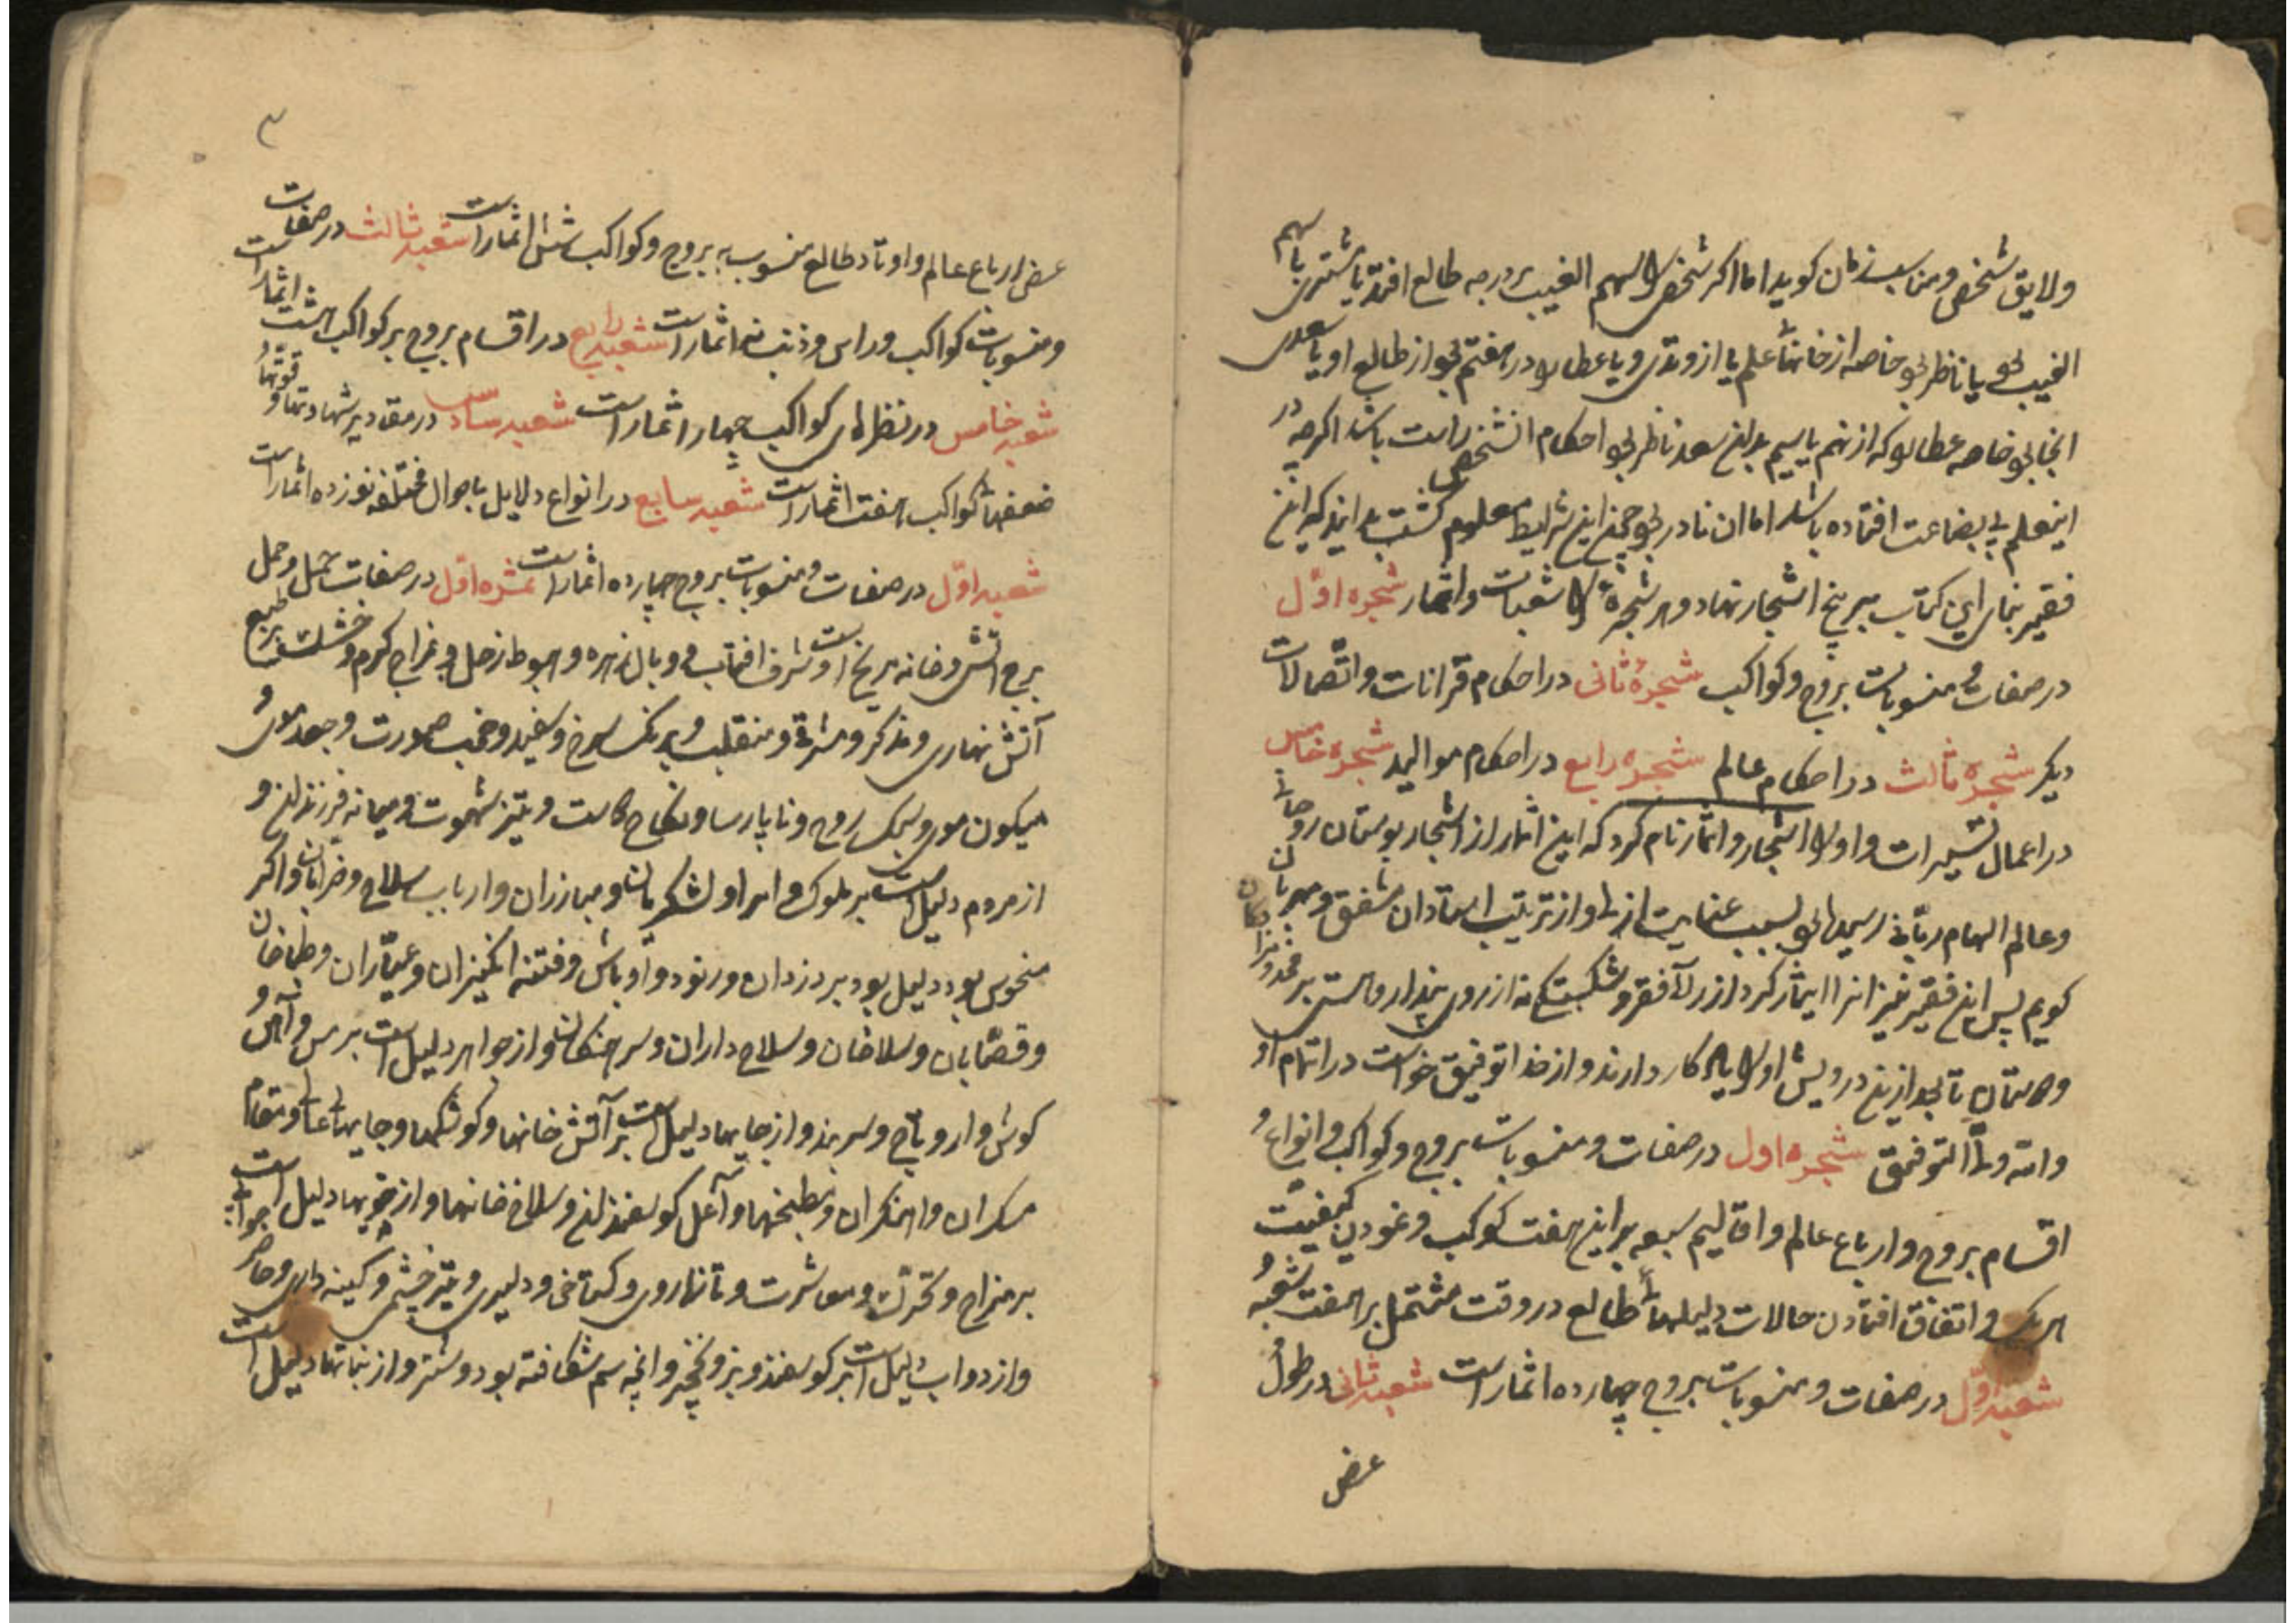 ولایق شخص و مناسب زمان کوید اما اکر شخص را سهم الغیب بر درجه طالع افتد یا مشتری با سهم
الغیب بود یا ناظر بود خاصه از خانهاء علم یا از وتدی و یا عطارد در هفتم بود از طالع او یا سعدی
انجا بود خاصه عطارد که از نهم یا سیم بدین سعد ناظر بود احکام انشخص راست باشد اکرچه در
اینعلم بی بضاعت افتاده باشد اما ان نادر بود چون این شرایط معلوم کشت بدانید که این
فقیر بنای این کتاب بر پنج اشجار نهاد و هر شجرهٔ را شعبات و اثمار شجره اوّل
در صفات و منسوبات بروج و کواکب شجرهٔ ثانی در احکام قرانات و اتّصالات
دیکر شجره ثالث در احکام عالم شجره رابع در احکام موالید شجره خامس
در اعمال تسییرات و او را اشجار و اثمار نام کرد که این اثمار از اشجار بوستان روحانی
و عالم الهام ربّانی رسیده بود بسبب عنایت ازلی و از تربیت استادان مشفق و مهربان
کویم پس این فقیر نیز انرا ایثار کرد از راه فقر و شکستکی نه از روی پندار و هستی بر مخدومزادکان
و دوستان تا بعد ازین درویش او را بکار دارند و از خدا توفیق خواست در اتمام او
والله ولیّ التوفیق شجره اول در صفات و منسوبات بروج و کواکب و انواع و
اقسام بروج و ارباع عالم و اقالیم سبعه بر این هفت کوکب و نمودن کیفیّت
هر یک و اتفاق افتادن حالات دلیلهاء طالع در وقت مشتمل بر هفت شعبه و
شعبه اوّل در صفات و منسوبات بروج چهارده اثمار است شعبه ثانی در طول و
عرض
٣
عرض ارباع عالم و اوتاد طالع منسوب به بروج و کواکب شش اثمار است شعبه ثالث در صفات
و منسوبات کواکب و راس و ذنب نه اثمار است شعبه رابع در اقسام بروج بر کواکب هشت اثمار است
شعبه خامس در نظرهای کواکب چهار اثمار است شعبه سادس در مقادیر شهادتها و قوتها و
ضعفهاء کواکب هفت اثمار است شعبه سابع در انواع دلایل باحوال مختلفه نوزده اثمار است
شعبه اوّل در صفات و منسوبات بروج چهارده اثمار است ثمره اوّل در صفات حمل و حمل
برج اتش و خانه مریخ است و شرف افتاب و وبال زهره و هبوط زحل و مزاج کرم و خشک بر طبع
آتش نهاری و مذکر و مشرقی و منقلب و برنک سرخ و سفید و خوب صورت و جعد موی و
میکون موی و سبک روح و ناپارسا و نکاح دوست و تیز شهوت و میانه فرزند و
از مردم دلیل است بر ملوک و امرا و لشکریان و مبارزان و ارباب سلاح و ضرّابان و اکر
منحوس بود دلیل بود بر دزدان و رنود و اوباش و فتنه انکیزان و عیّاران و طباخان
و قصّابان و سلاخان و سلاح داران و سرهنکان و از جواهر دلیل است بر مس و آهن و
کوشوار و تاج و سربند و از جایها دلیل است بر آتش خانها و کوشکها و جایهاء عالی و مقام
مسکران و اهنکران و مطبخها و آغل کوسفندان و سلاح خانها و از خویها دلیل است
بر مزاح و تحرّک و معاشرت و تازه روی و کستاخی و دلیری و تیز خشمی و کینه داری و حاضر جوابی
و از دواب دلیل است بر کوسفند و بز و نخچیر و انچه سم شکافته بود و شتر و از نباتها دلیل است